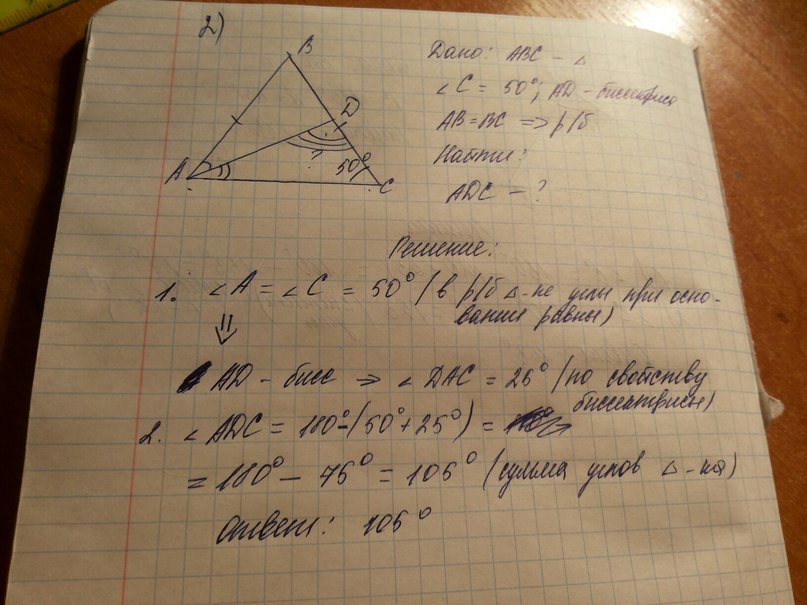 2)
B
D
A
?
50°
C
Дано: ABC - △
∠C = 50°; AD - биссектриса
AB = BC => р/б
Найти:
ADC - ?
Решение:
1. ∠A = ∠C = 50° (в р/б △-ке углы при осно-
вании равны)
⇓
AD - бисс => ∠DAC = 25° (по свойству
биссектрисы)
2. ∠ADC = 180° - (50° + 25°) =
= 180° - 75° = 105° (сумма углов △-ка)
Ответ: 105°